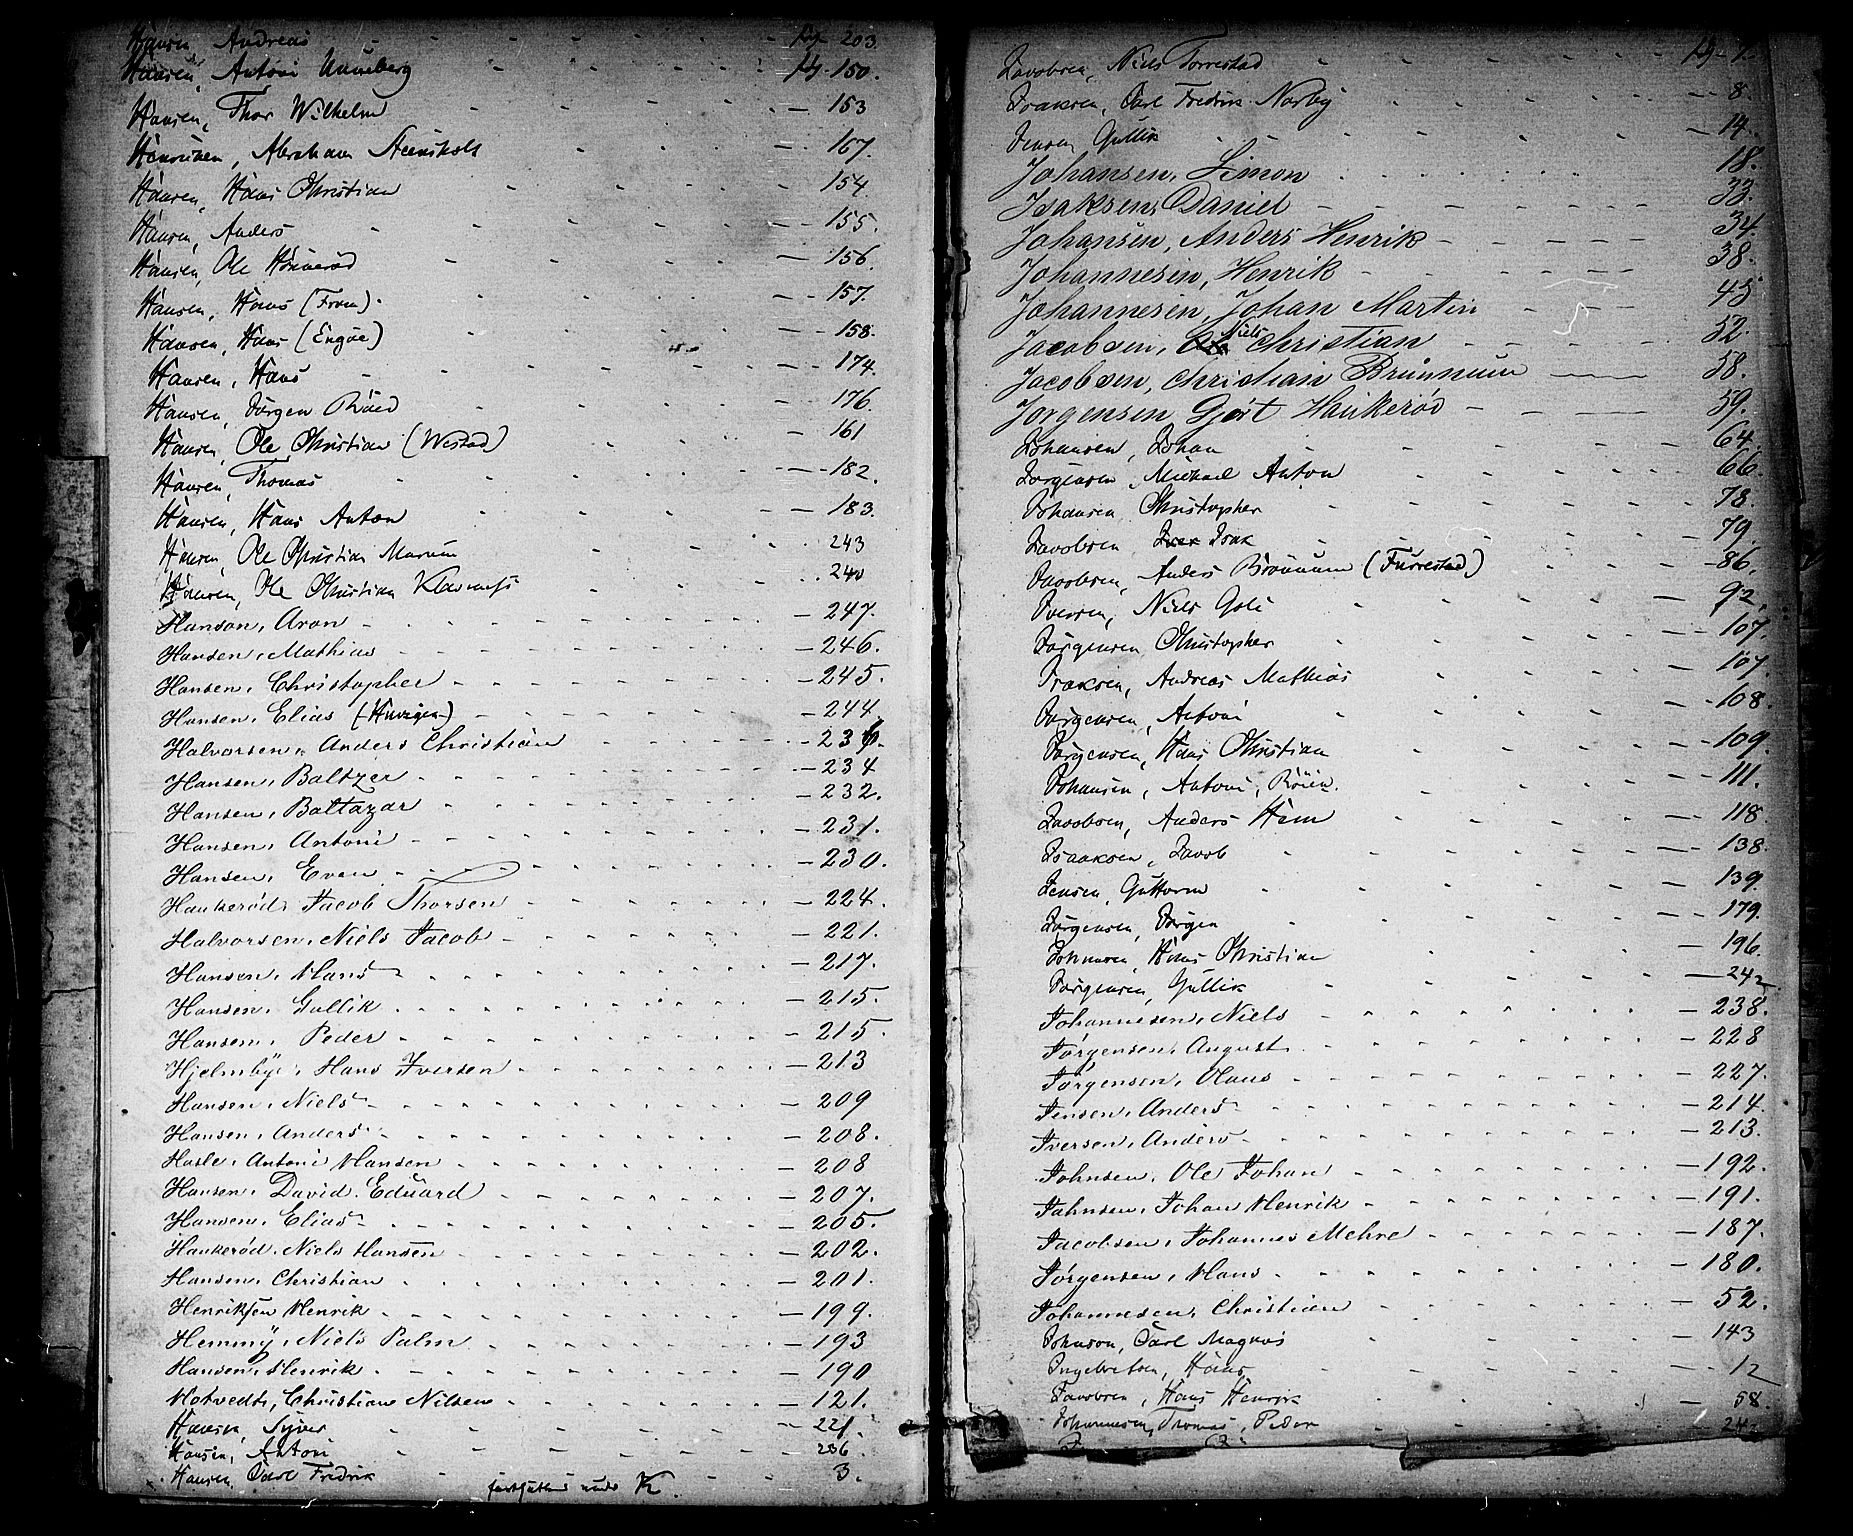 Hansen, Andreas - pg 203.
Hansen, Antoni Unneberg - pg 150.
Hansen, Thor Wilhelm - 153
Henriksen, Abraham Steensholt - 167.
Hansen, Hans Christian - 154.
Hansen, Anders - 155.
Hansen, Ole Hounerød - 156.
Hansen, Hans (From). - 157.
Hansen, Hans (Engøe) - 158.
Hansen, Hans - 174.
Hansen, Jørgen Röed - 176.
Hansen, Ole Christian (Westad) - 161
Hansen, Thomas - 182.
Hansen, Hans Anton - 183.
Hansen, Ole Christian Marum - 243
Hansen, Ole Christian Klavenes - 240
Hanson, Aron - 247.
Hansen, Mathias - 246.
Hansen, Christopher - 245.
Hansen, Elias - 244
Halvorsen, Anders Christian - 236.
Hansen, Baltzer - 234
Hansen, Baltazar - 232.
Hansen, Antoni - 231.
Hansen, Even - 230.
Haukerød, Jacob Thorsen - 224.
Halvorsen, Niels Jacob - 221.
Hansen, Hans - 217.
Hansen, Gullik - 215.
Hansen, Peder - 215.
Hjelmbye, Hans Iversen - 213
Hansen, Niels - 209
Hansen, Anders - 208.
Hasle, Antoni Hansen - 208
Hansen, David Eduard - 207.
Hansen, Elias - 205.
Haukerød, Niels Hansen - 202.
Hansen, Christian - 201.
Henriksen Henrik - 199.
Hemmy, Niels Palm - 193
Hansen, Henrik - 190
Hotvedt, Christian Nilsen - 121.
Hansen, Syver - 221.
Hansen, Anton - 236.
Hansen, Carl Fredrik - 3.
fortsættes under K.
Jacobsen, Niels Torrestad - pg 7.
Isaksen, Carl Fredrik Narby - 8.
Jensen, Gullik - 14.
Johansen, Simon - 18.
Isaksen, Daniel - 33.
Johansen, Anders Henrik - 34.
Johannesen, Henrik - 38.
Johannesen, Johan Martin - 43
Jacobsen, Niels Christian - 52.
Jacobsen, Christian Brunnum - 58.
Jørgensen Gjert Haukerød - 59.
Johansen, Johan - 64.
Jørgensen, Michael Anton - 66.
Johansen, Christopher - 78.
Jacobsen Iver Isak - 79.
Jacobsen, Anders Brunnum (Furrestad) - 86.
Iversen, Niels Gole - 92.
Jørgensen Christopher - 107.
Isaksen, Andreas Mathias - 107.
Jørgensen, Antoni - 108.
Jørgensen, Hans Christian - 109.
Johansen, Antoni, Röien. - 111.
Jacobsen, Anders Hem - 118.
Isaaksen, Jacob - 138.
Jensen, Guttorm - 139.
Jørgensen, Jørgen - 179.
Johnsen, Hans Christian - 196.
Jørgensen, Gullik - 242
Johannesen, Niels - 238.
Jørgensen, August - 228
Jørgensen, Hans - 227.
Jensen, Anders - 214.
Iversen, Anders - 213.
Johnsen, Ole Johan - 192.
Johnsen, Johan Henrik - 191.
Jacobsen, Johannes Mehre - 187.
Jørgensen, Hans - 180.
Johannesen, Christian - 52.
Johnson, Carl Magnus - 143
Ingebretsen, Hans - 12
Jacobsen, Hans Henrik - 58.
Johannesen, Thomas, Peder - 242